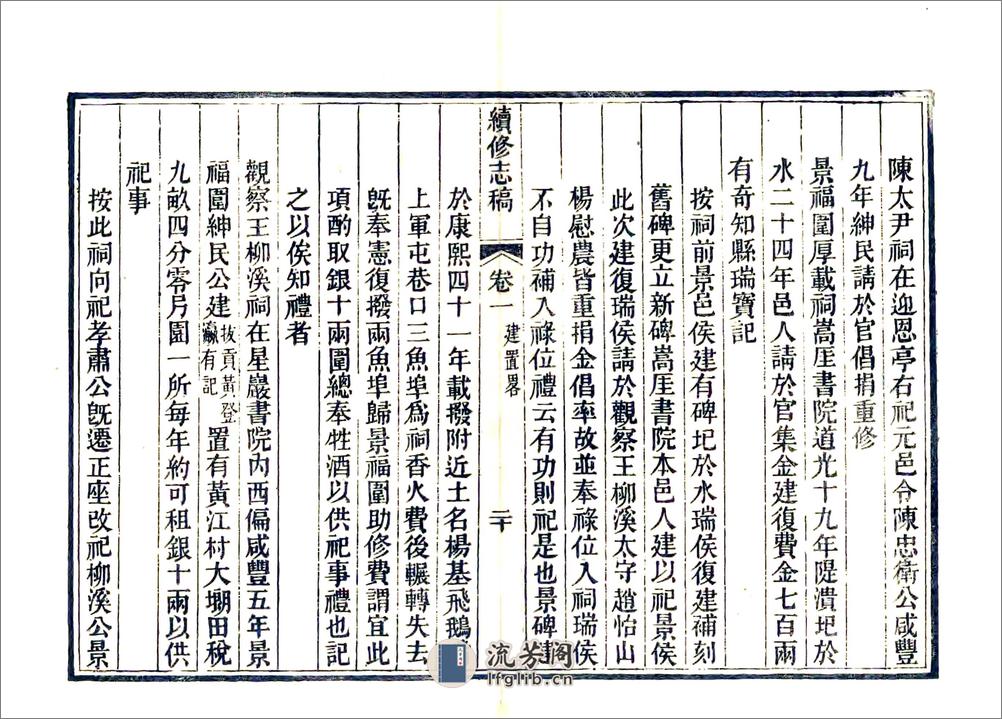 陳太尹祠在迎恩亭右祀元邑令陳忠衛公咸豐
九年紳民請於官倡捐重修
景福圍厚載祠嵩厓書院道光十九年隄潰圯於
水二十四年邑人請於官集金建復費金七百兩
有奇知縣瑞寶記
按祠前景邑侯建有碑圯於水瑞侯復建補刻
舊碑更立新碑嵩厓書院本邑人建以祀景侯
此次建復瑞侯請於觀察王柳溪太守趙怡山
楊慰農皆重捐金倡率故並奉祿位入祠瑞侯
不自功補入祿位禮云有功則祀是也景碑事
續修志稿
卷一
建置畧
二十
於康熙四十一年載撥附近土名楊基飛鵝
上軍屯巷口三魚埠為祠香火費後輾轉失去
旣奉憲復撥兩魚埠歸景福圍助修費謂宜此
項酌取銀十兩圍總奉牲酒以供祀事禮也記
之以俟知禮者
觀察王柳溪祠在星巖書院內西偏咸豐五年景
福圍紳民公建拔貢黃登瀛有記置有黃江村大塱田稅
九畝四分零乃園一所每年約可租銀十兩以供
祀事
按此祠向祀孝肅公旣遷正座改祀柳溪公景
流芳阁
lfglib.cn